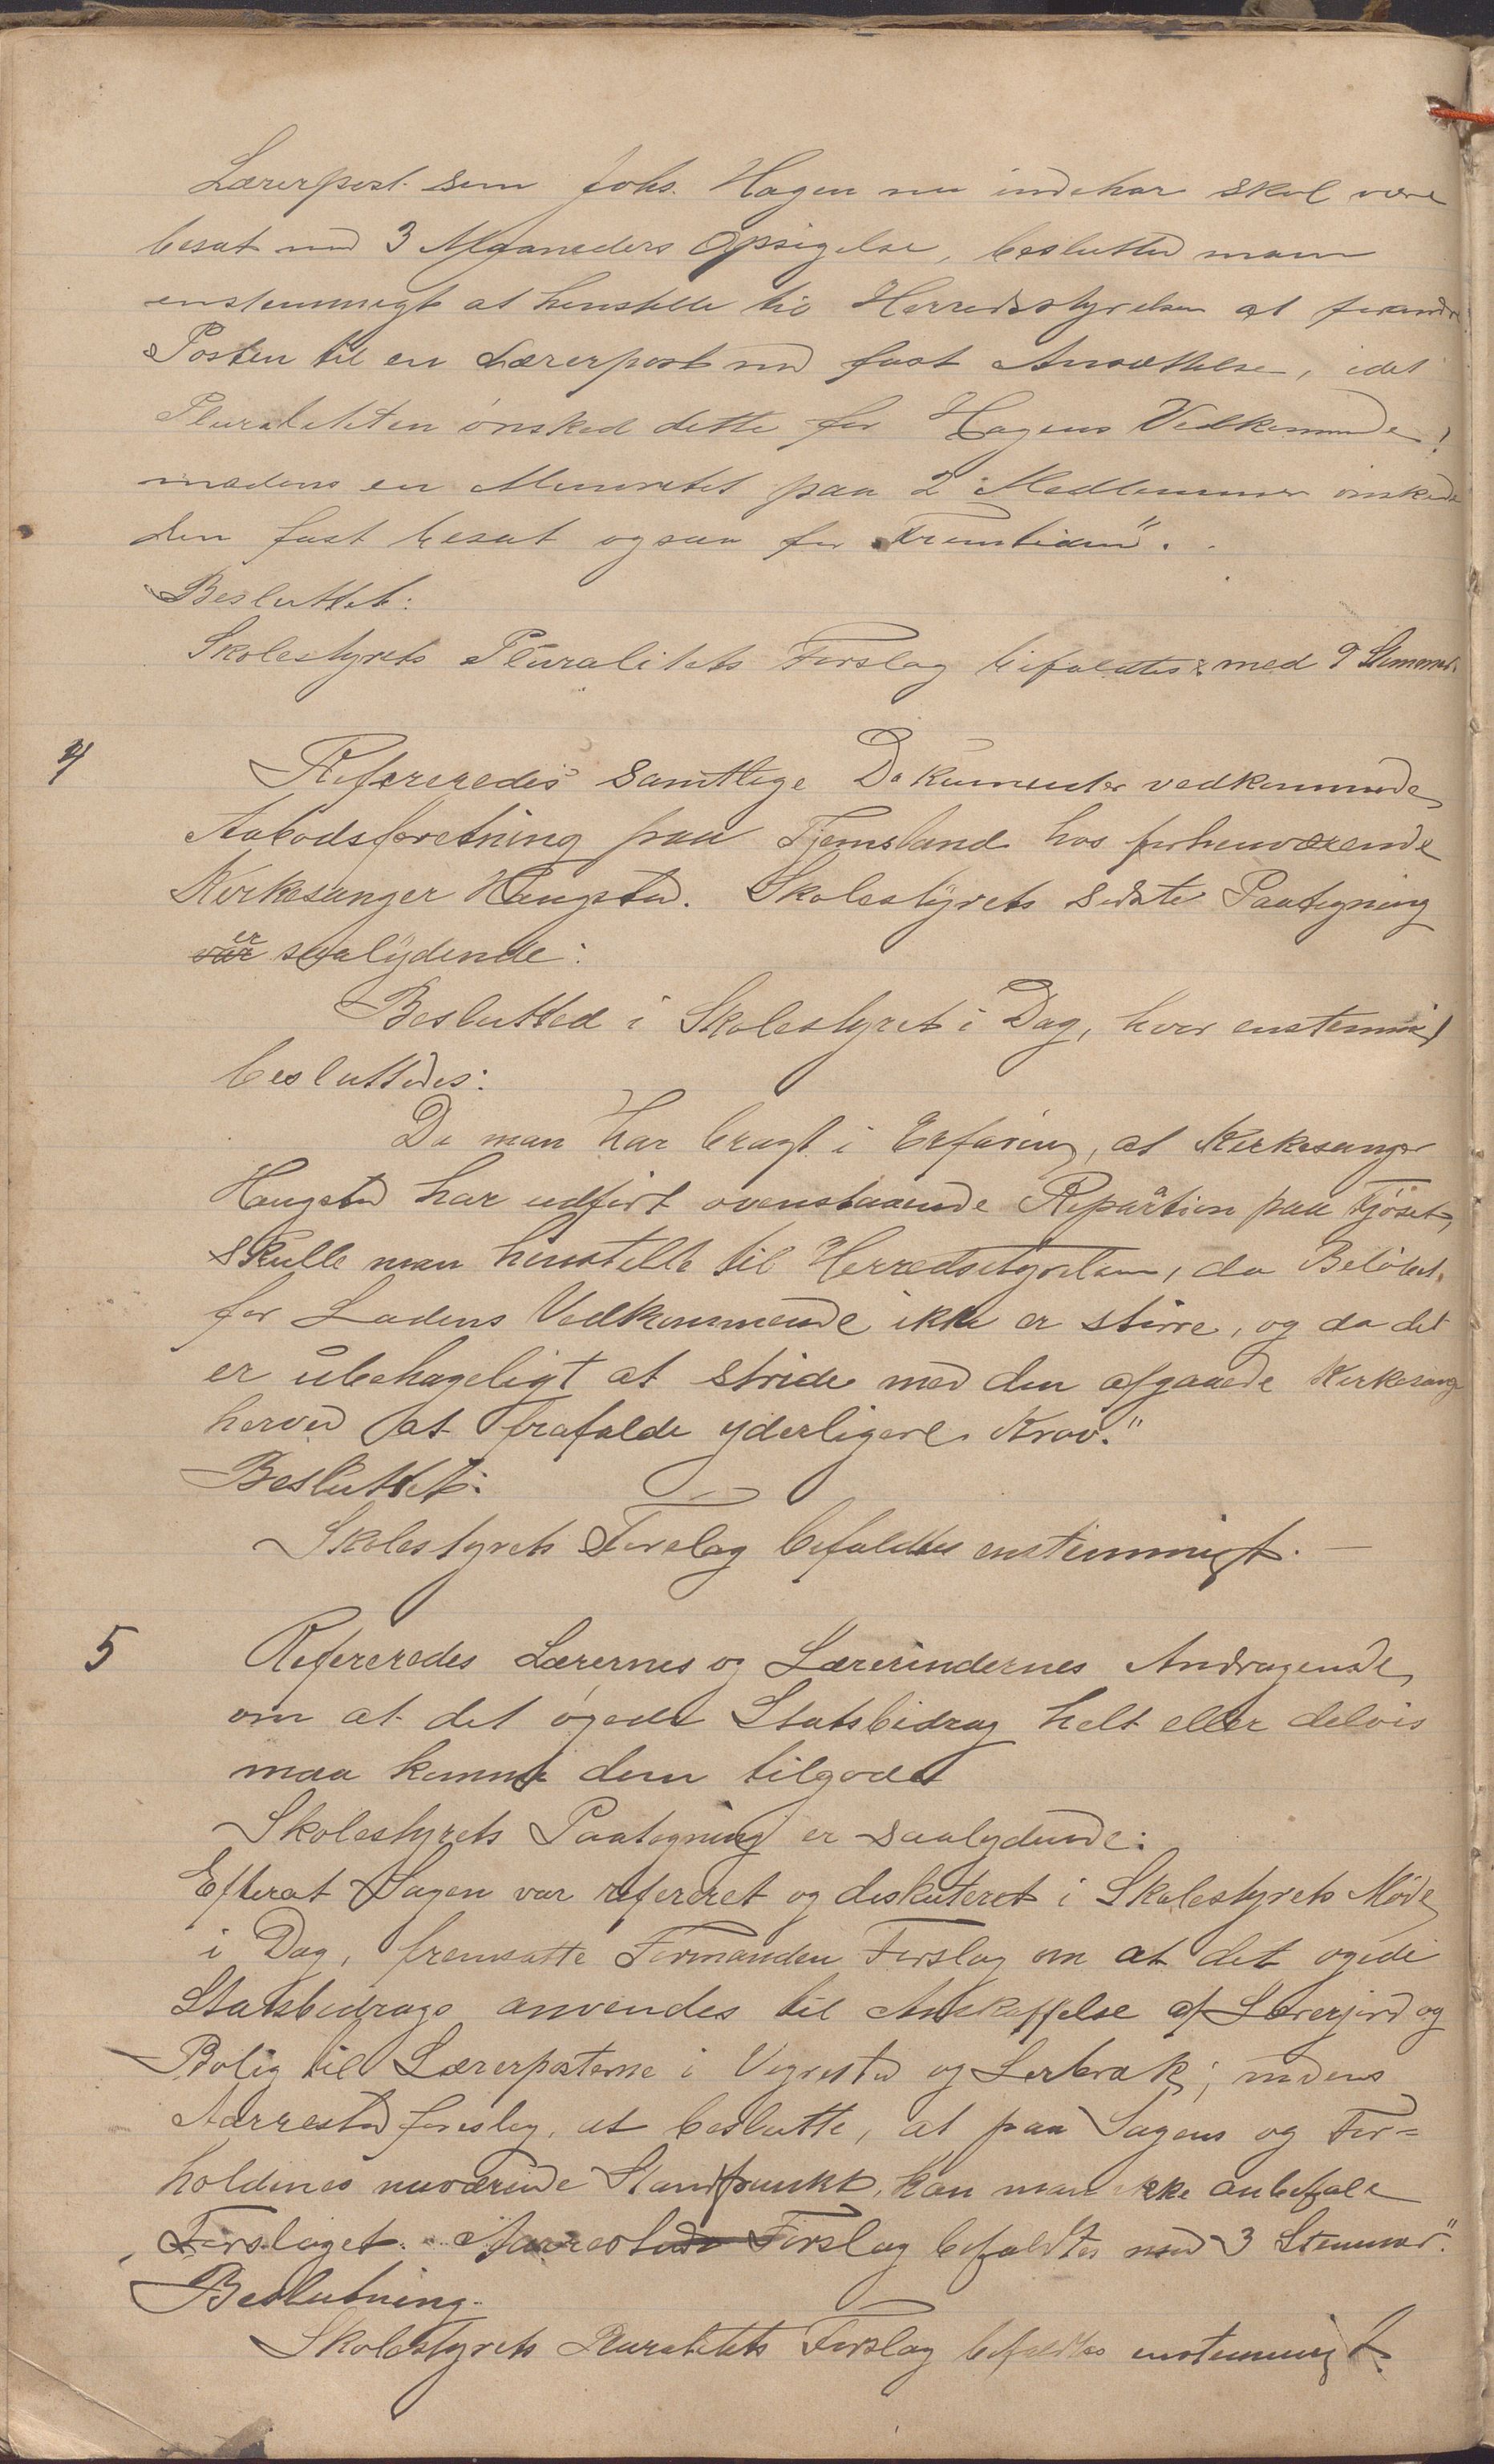 Lærerpost som Johs. Hagen nu indehar skal være
besat med 3 Maaneders Opsigelse, beslutted man
enstemmigt at henstille til Herredsstyrelsen at forandre
Posten til en Lærerpost med fast Ansættelse, idet
Pluraliteten ønsked dette for Hagens Vedkommende,
medens en Minoritet paa 2 Medlemmer ønskede
den fast besat ogsaa for Fremtiden".
Besluttet:
Skolestyrets Pluralitets Forslag bifaldtes med 9 Stemmer.
4 Refereredes samtlige Dokumenter vedkommende
Aabodsforetning paa Tjemsland hos forhenværende
Kirkesanger Haugstad. Skolestyrets sidste Paategning
er saalydende:
Beslutted i Skolestyret i Dag, hvor enstemmigt
besluttedes:
Da man har bragt i Erfaring, at Kirkesanger
Haugstad har udført ovenstaaende Reparation paa Fjøset,
skulle man henstille til Herredsstyrelsen, da Beløbet
for Ladens Vedkommende ikke er større, og da det
er ubehageligt at stride med den afgaaede Kirkesang
herved at frafalde yderligere Krav."
Besluttet:
Skolestyrets Forslag bifaldtes enstemmigt. —
5 Refereredes Lærernes og Lærerindernes Andragende
om at det øgede Statsbidrag helt eller delvis
maa komme dem tilgode
Skolestyrets Paategning er saalydende:
Efterat Sagen var refereret og diskuteret i Skolestyrets Møde
i Dag, fremsatte Formanden Forslag om at det øgede
Statsbidrags anvendes til Anskaffelse af Lærerjord og
Bolig til Lærerposterne i Vigrestad og Lerbrak; medens
Aarrestad foreslog, at beslutte, at paa Sagens og For=
holdenes nuværende Standpunkt, kan man ikke anbefale
Forslaget. Aarrestads Forslag bifaldtes med 3 Stemmer".
Beslutning.
Skolestyrets Pluralitets Forslag bifaldtes enstemmigt.